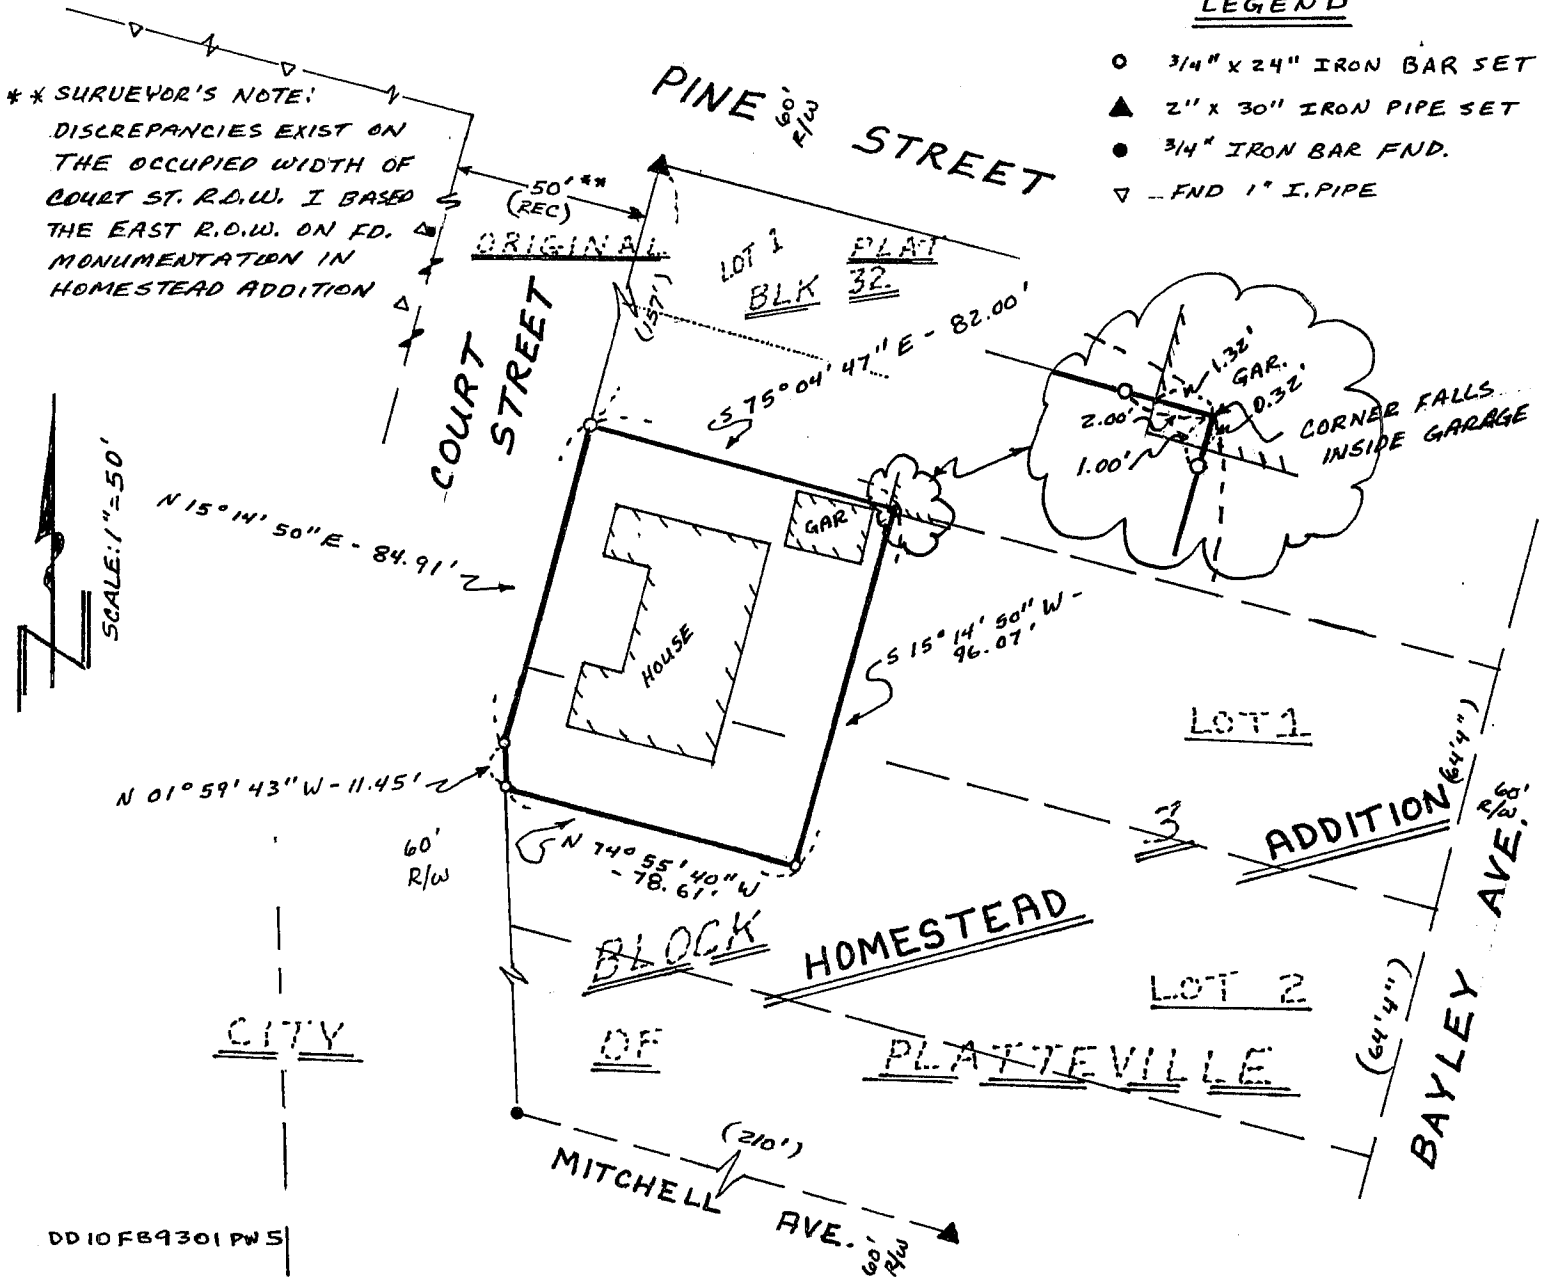 LEGEND
3/4" x 24" IRON BAR SET
2" x 30" IRON PIPE SET
3/4" IRON BAR FND.
FND 1" I.PIPE
** SURVEYOR'S NOTE:
DISCREPANCIES EXIST ON
THE OCCUPIED WIDTH OF
COURT ST. R.O.W. I BASED
THE EAST R.O.W. ON FD.
MONUMENTATION IN
HOMESTEAD ADDITION
PINE STREET
60'
R/W
50' **
(REC)
ORIGINAL PLAT
LOT 1
BLK 32
(157')
COURT
STREET
S 75° 04' 47" E - 82.00'
1.32'
GAR.
0.32'
2.00'
1.00'
CORNER FALLS
INSIDE GARAGE
SCALE: 1" = 50'
N 15° 14' 50" E - 84.91'
GAR
HOUSE
S 15° 14' 50" W -
96.07'
N 01° 59' 43" W - 11.45'
60'
R/W
N 74° 55' 40" W
- 78.61'
LOT 1
(64'4")
3
ADDITION
60'
R/W
BAYLEY AVE.
BLOCK
HOMESTEAD
LOT 2
(64'4")
CITY OF PLATTEVILLE
(210')
MITCHELL AVE.
60'
R/W
DD10FB9301PW5